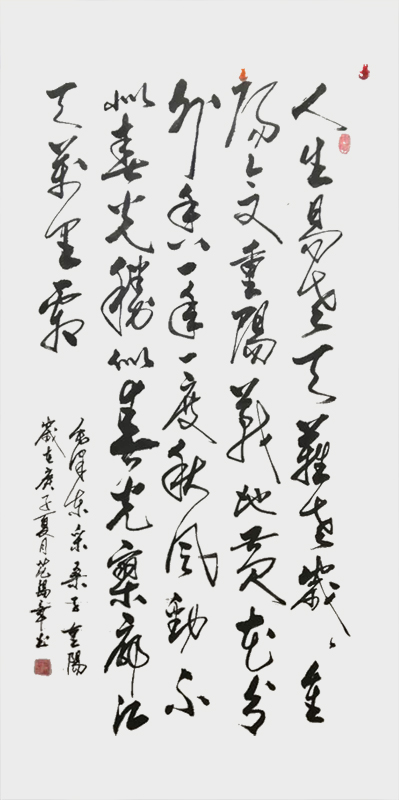 人生易老天難老歲〻重
陽今又重陽戰地黃花分
外香一年一度秋風勁不
似春光勝似春光寥廓江
天萬里霜
毛澤東采桑子重陽
歲在庚子夏月范書